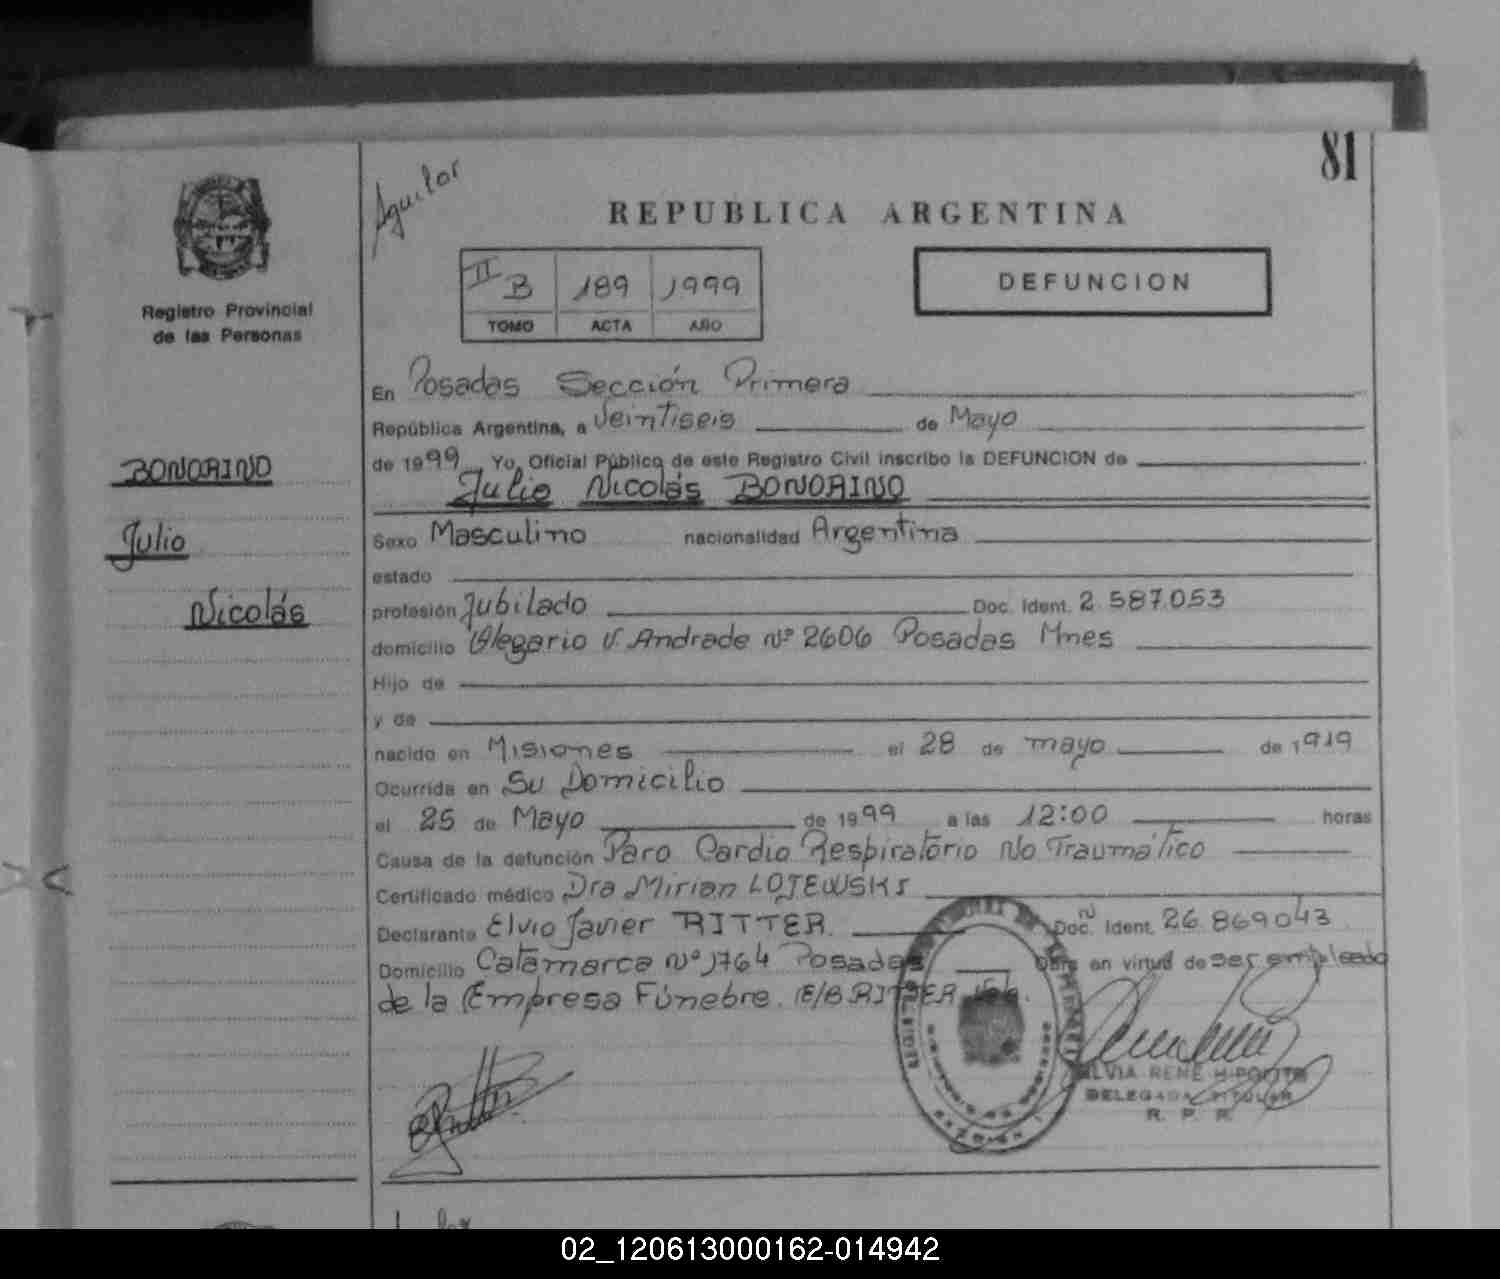 81
Aguilar
REPUBLICA ARGENTINA
II B 189 1999
TOMO ACTA AÑO
DEFUNCION
Registro Provincial
de las Personas
BONORINO
Julio
Nicolás
En Posadas Sección Primera
República Argentina, a Veintiseis de Mayo
de 1999 Yo, Oficial Público de este Registro Civil inscribo la DEFUNCION de
Julio Nicolás BONORINO
Sexo Masculino nacionalidad Argentina
estado
profesión Jubilado Doc. Ident. 2.587.053
domicilio Olegario V. Andrade Nº 2606 Posadas Mnes
Hijo de
y de
nacido en Misiones el 28 de mayo de 1919
Ocurrida en Su Domicilio
el 25 de Mayo de 1999 a las 12:00 horas
Causa de la defunción Paro Cardio Respiratorio No Traumático
Certificado médico Dra Mirian LOJEWSKI
Declarante Elvio Javier RITTER. Doc. Ident. 26.869.043
Domicilio Catamarca Nº 1764 Posadas Obra en virtud de ser empleado
de la Empresa Fúnebre. E/B RITTER
SILVIA RENE HIPOLITO
DELEGADA TITULAR
R. P. P.
02_120613000162-014942